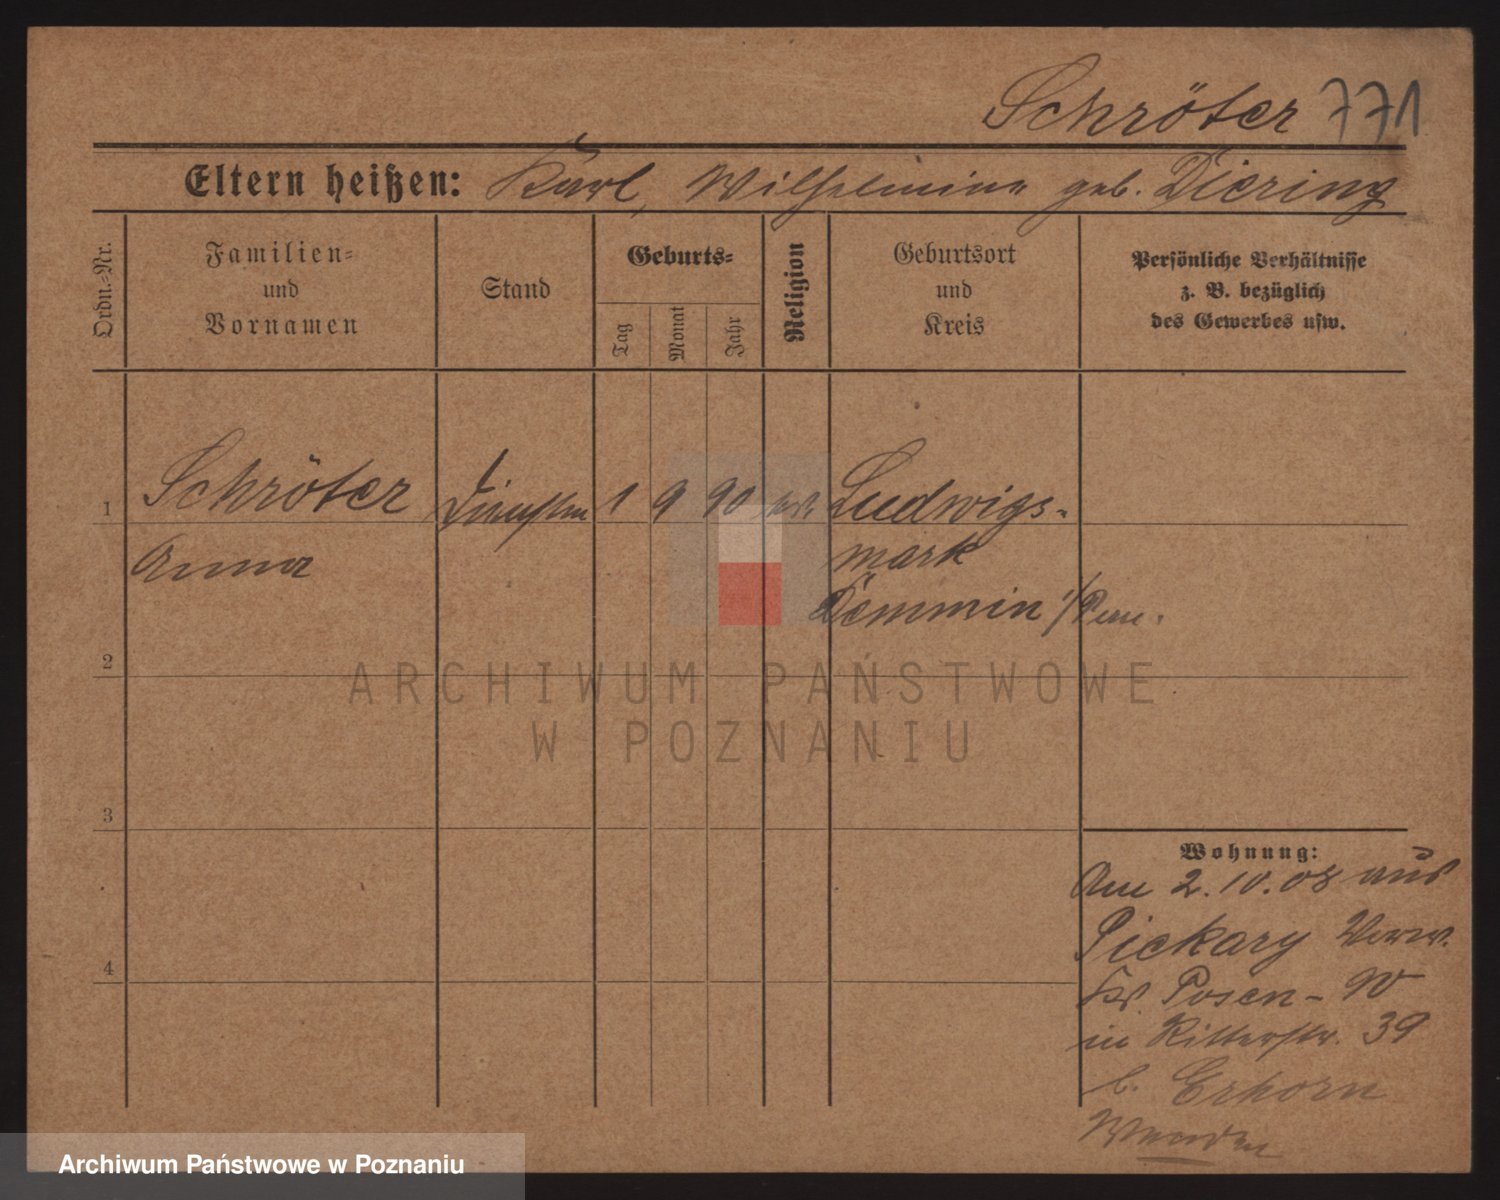 Schröter 771
Eltern heißen: Karl, Wilhelmine geb. Diering
Ordn.-Nr.
Familien-
und
Vornamen
Stand
Geburts-
Tag
Monat
Jahr
Religion
Geburtsort
und
Kreis
Persönliche Verhältnisse
z. B. bezüglich
des Gewerbes usw.
1 Schröter 1 9 90 Ludwigs-
Anna mark
Demmin i/Pom.
2
ARCHIWUM PAŃSTWOWE
W POZNANIU
3
Wohnung:
Am 2.10.08 aus
Pickary
Krs Posen - W
in Ritterstr. 39
b. Erhorn
Wenden
4
Archiwum Państwowe w Poznaniu